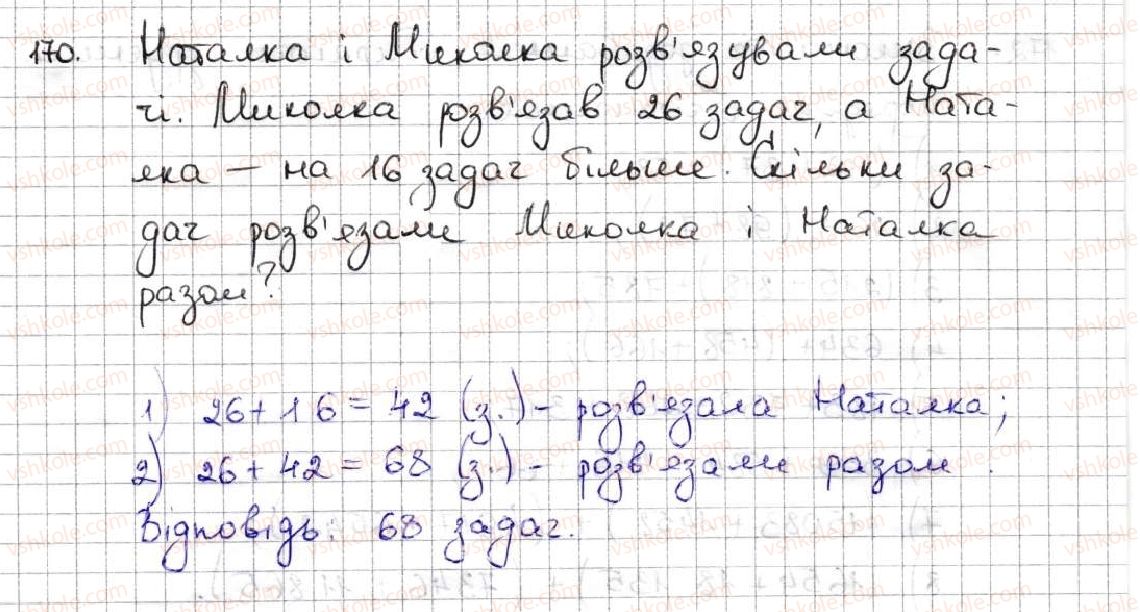 170. Наталка і Миколка розв'язували зада-
чі. Миколка розв'язав 26 задач, а Ната-
лка – на 16 задач більше. Скільки за-
дач розв'язали Миколка і Наталка
разом?
1) 26 + 16 = 42 (з.) – розв'язала Наталка;
2) 26 + 42 = 68 (з.) – розв'язали разом.
Відповідь: 68 задач.